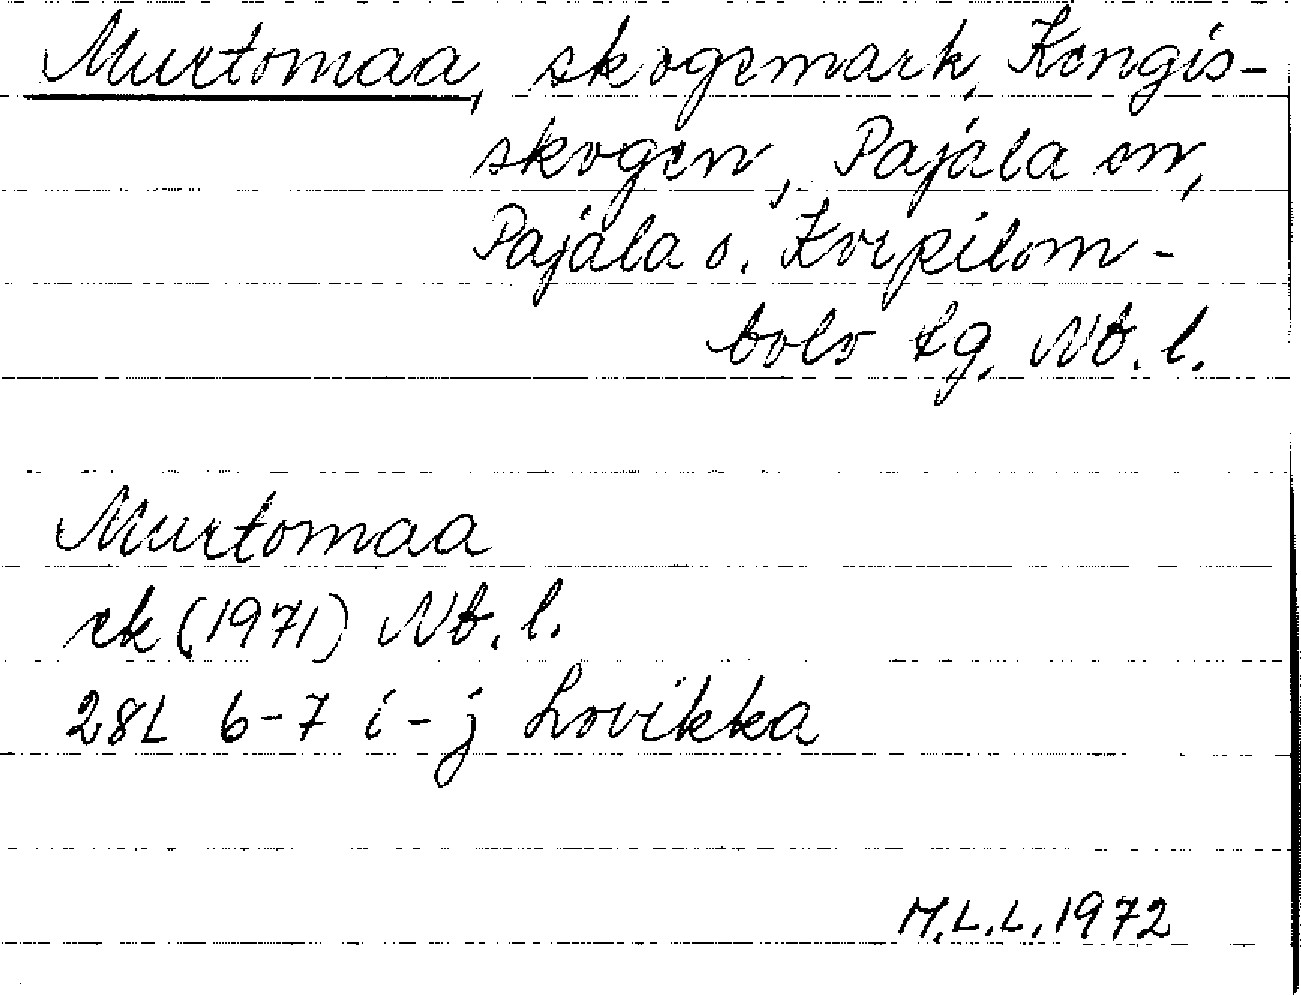 Murtomaa, skogsmark, Kengis-
skogen, Pajala sn,
Pajala o. Korpilom-
bolo tg, Nb. l.
Murtomaa
ek (1971) Nb. l.
28L 6-7 i-j Lovikka
M.L.L. 1972